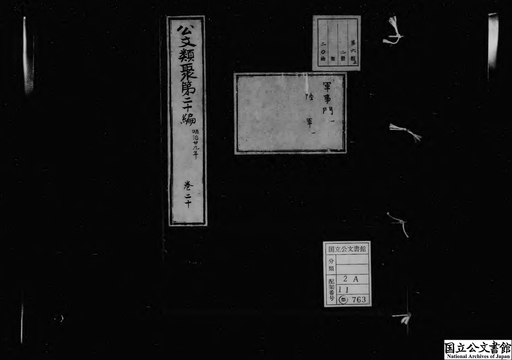 公文類聚第二十編
明治廿九年
巻二十
軍事門一
陸軍一
国立公文書館
分類
配架番号
2A
11
類 763
国立公文書館
National Archives of Japan